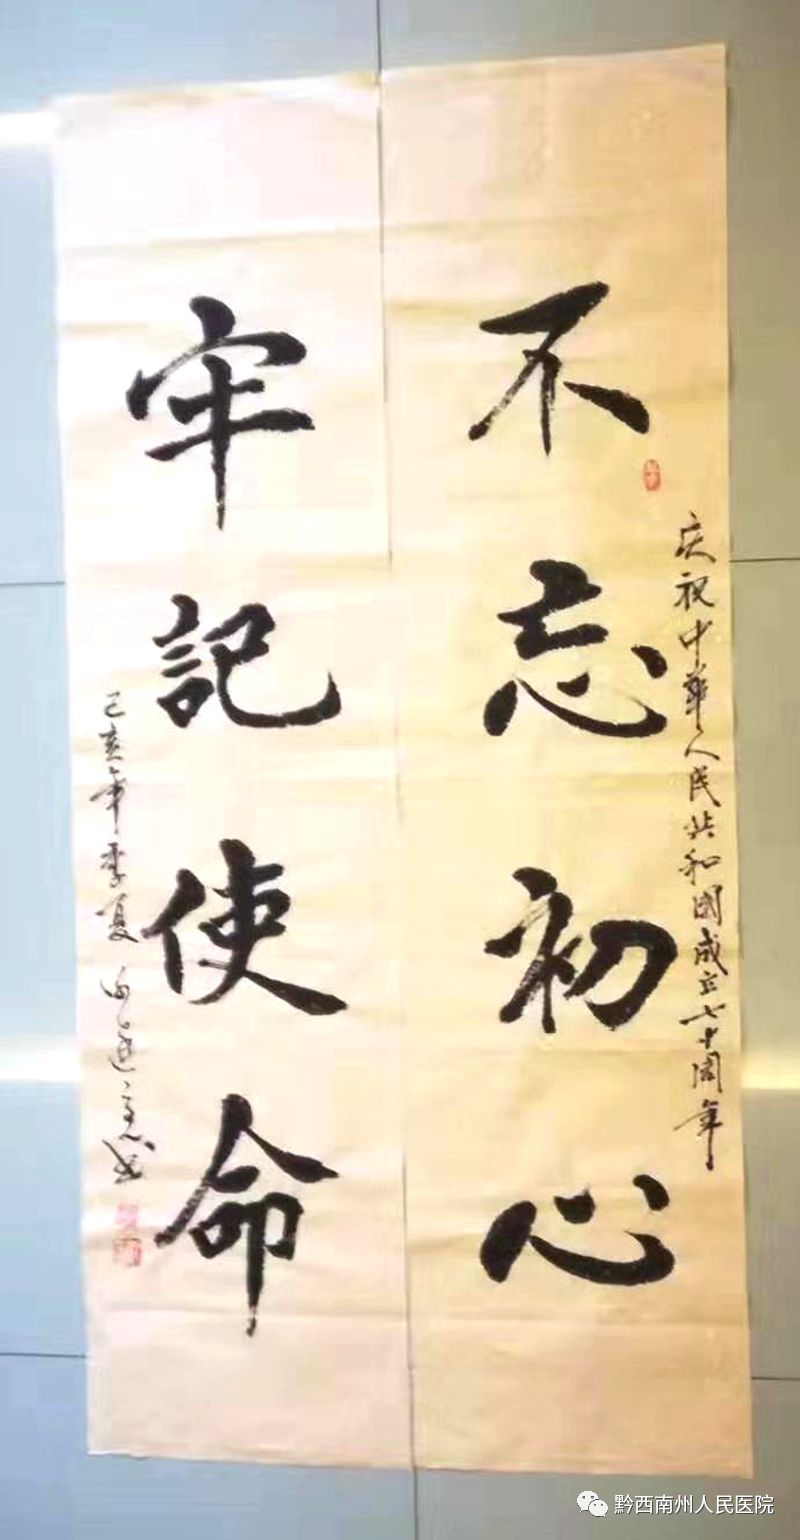 庆祝中华人民共和國成立七十周年
不忘初心
牢記使命
己亥年季夏
书
黔西南州人民医院